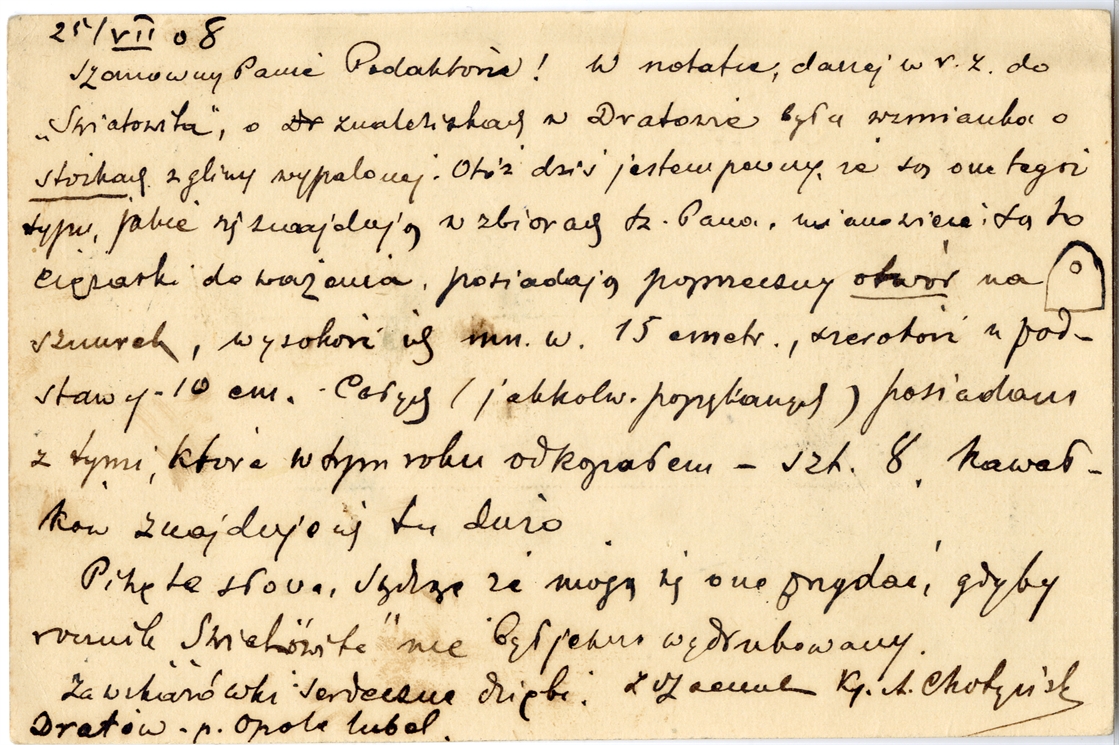 25/VII 08
Szanowny Panie Redaktorze! W notatce, danej w r. z. do
„Światowita", o znaleziskach w Dratowie była wzmianka o
stożkach z gliny wypalonej. Otóż dziś jestem pewny, że są one tegoż
typu, jakie się znajdują w zbiorach Sz. Pana, mianowicie: są to
ciężarki do ważenia, posiadają poprzeczny otwór na
sznurek, wysokość ich mn. w. 15 cmetr., szerokość u pod-
stawy - 10 cm. - Całych (jakkolw. popękanych) posiadam
z tymi, które w tym roku odkopałem – szt. 8. Kawał-
ków znajduje się tu dużo
Piszę te słowa, sądzę że mogą się one przydać, gdyby
rocznik Światowita" nie był jeszcze wydrukowany.
Za wskazówki serdeczne dzięki. Kg. A. Chotyński
Dratów - p. Opole lubel.